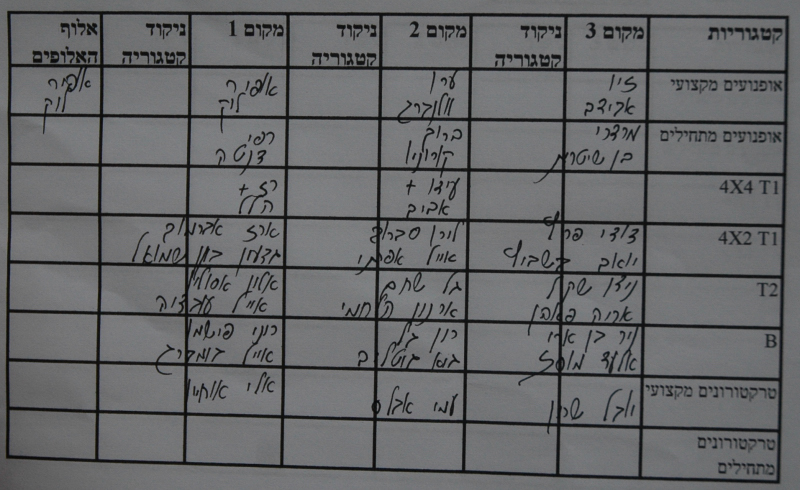 קטגוריות מקום 3 ניקוד קטגוריה מקום 2 ניקוד קטגוריה מקום 1 ניקוד קטגוריה אלוף האלופים
אופנועים מקצועי זיו אבידב ערן וולנברג אופיר לוק אופיר לוק
אופנועים מתחילים מרדכי בן שיטרית ברוך רפי
4X4 T1 עידו + אביב רז + הלל
4X2 T1 דודי יואב לירן סברוב אייל אפרתי ארז אברמוב גדעון בן שמואל
T2 ניצן אריה גל שחם ארנון אלון אסולין אייל עובדיה
B ניר בן ארי אלעד רון גל רוני פישמן אייל במברג
טרקטורונים מקצועי יובל שרון עמי אלי אוחיון
טרקטורונים מתחילים